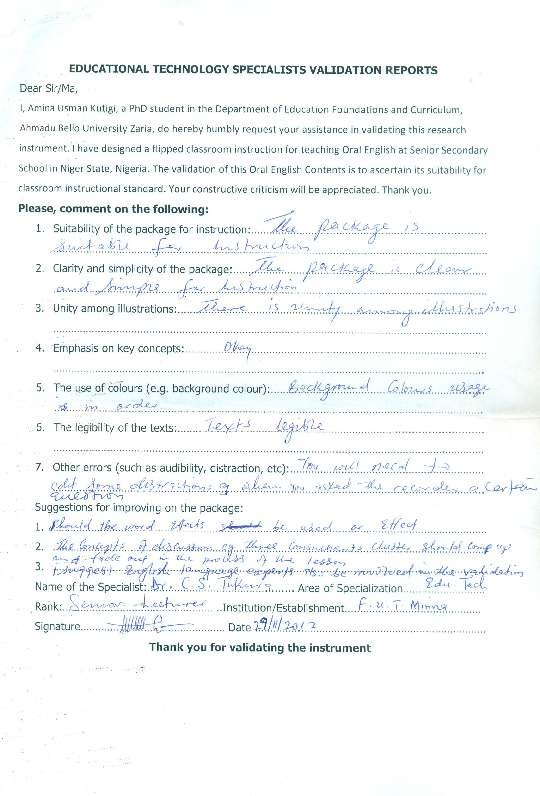 EDUCATIONAL TECHNOLOGY SPECIALISTS VALIDATION REPORTS
Dear Sir/Ma,
I, Amina Usman Kutigi, a PhD student in the Department of Education Foundations and Curriculum,
Ahmadu Bello University Zaria, do hereby humbly request your assistance in validating this research
instrument. I have designed a flipped classroom instruction for teaching Oral English at Senior Secondary
School in Niger State, Nigeria. The validation of this Oral English Contents is to ascertain its suitability for
classroom instructional standard. Your constructive criticism will be appreciated. Thank you.
Please, comment on the following:
1. Suitability of the package for instruction: The package is
suitable for instruction
2. Clarity and simplicity of the package: The package is clear
and simple for instruction
3. Unity among illustrations: There is unity among illustrations
4. Emphasis on key concepts: Okay
5. The use of colours (e.g. background colour): Background Colours usage
is in order
6. The legibility of the texts: Texts legible
7. Other errors (such as audibility, distraction, etc): You will need to
some distractions when asked the a certain
question
Suggestions for improving on the package:
1. Should the word Effects be used or Effect
2. The concepts of discussion eg three consonants cluster should come up
and fade out in the process of the lesson
3. I suggest English language experts to be involved in the validation
Name of the Specialist: Dr. C. S. Area of Specialization Edu Tech
Rank: Senior Lecturer Institution/Establishment F.U.T Minna
Signature Date 29/11/2017
Thank you for validating the instrument